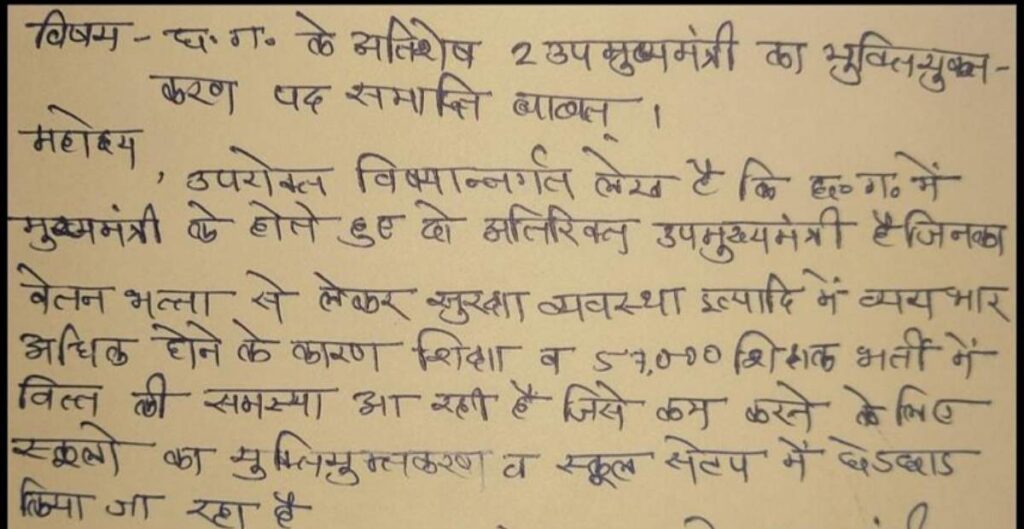 विषय - छ.ग. के अतिशेष 2 उपमुख्यमंत्री का युक्तियुक्त-
करण पद समाप्ति बाबत् ।
महोदय
, उपरोक्त विषयान्तर्गत लेख है कि छ.ग. में
मुख्यमंत्री के होते हुए दो अतिरिक्त उपमुख्यमंत्री है जिनका
वेतन भत्ता से लेकर सुरक्षा व्यवस्था इत्यादि में व्यय भार
अधिक होने के कारण शिक्षा व 57,000 शिक्षक भर्ती में
वित्त की समस्या आ रही है जिसे कम करने के लिए
स्कूलो का युक्तियुक्तकरण व स्कूल सेटप में छेडछाड
किया जा रहा है